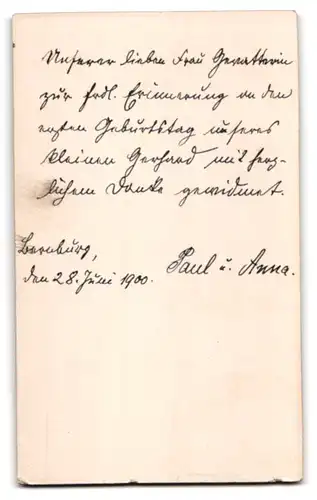 Unserer lieben Frau Gevatterin
zur frdl. Erinnerung an den
ersten Geburtstag unseres
kleinen Gerhard mit herz-
lichem Danke gewidmet.
Bernburg,
den 28. Juni 1900.
Paul u. Anna.